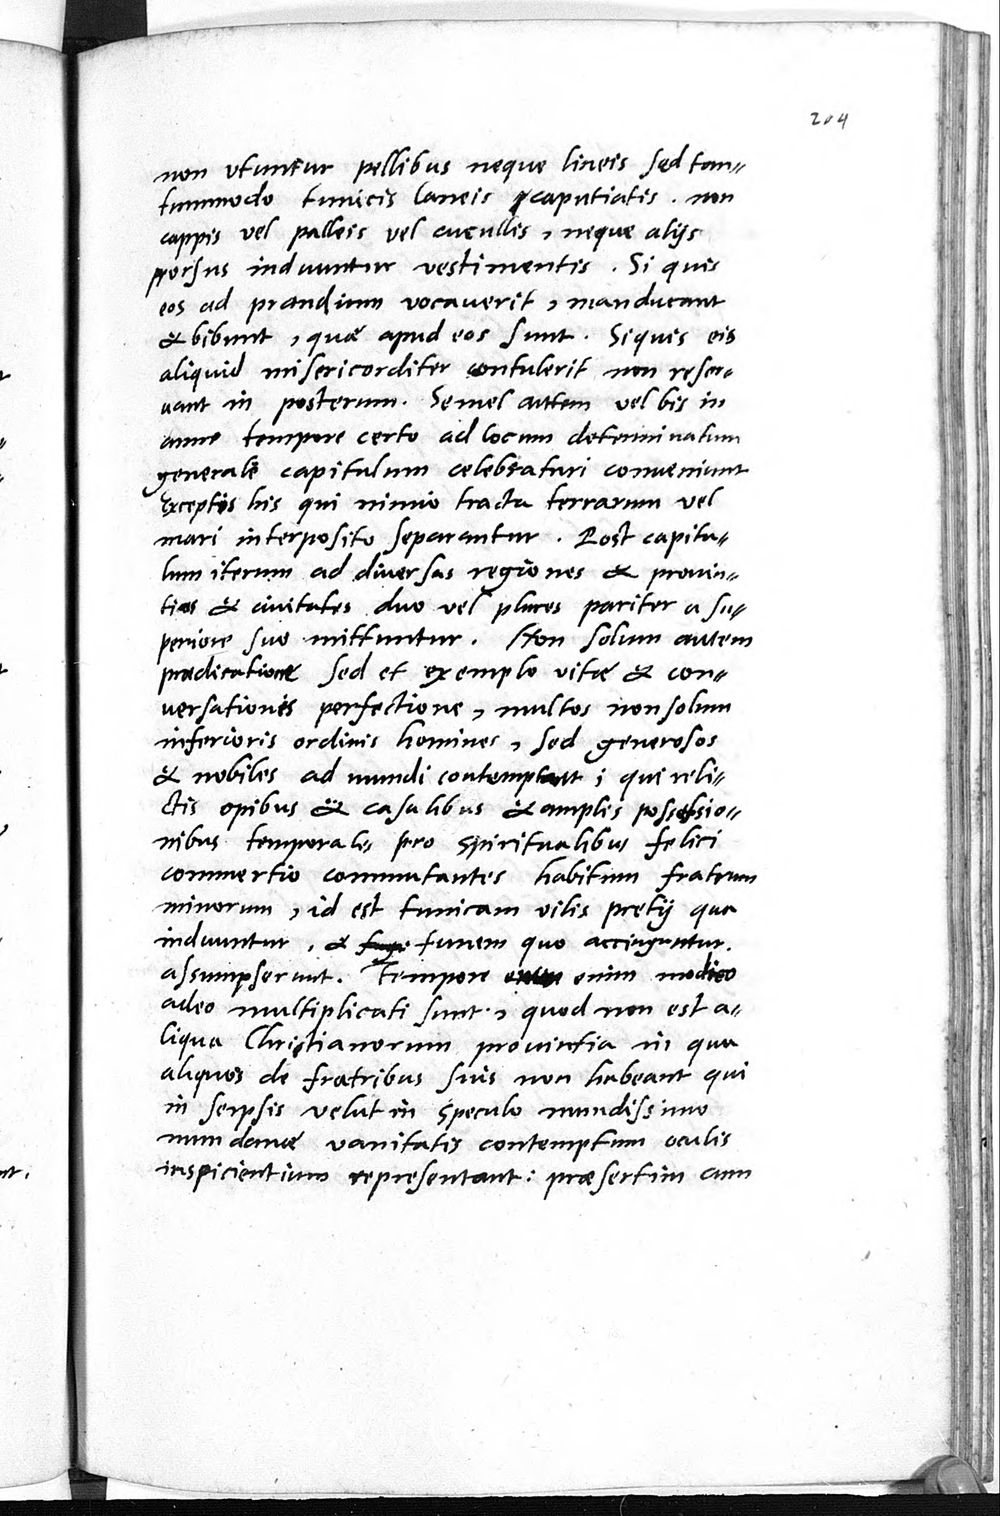 204
non vtuntur pellibus neque lineis sed tan-
tummodo tunicis laneis caputiatis . non
cappis vel palleis vel cucullis , neque alijs
prorsus induuntur vestimentis . Si quis
eos ad prandium vocauerit , manducant
& bibunt , quæ apud eos sunt . Siquis eis
aliquid misericorditer contulerit non reser-
uant in posterum . Semel autem vel bis in
anno tempore certo ad locum determinatum
generale capitulum celebraturi conueniunt
exceptis his qui nimio tractu terrarum vel
mari interposito separantur . Post capitu-
lum iterum ad diuersas regiones & prouin-
tias & ciuitates duo vel plures pariter a su-
periore suo mittuntur . Non solum autem
prædicatione sed et exemplo vitæ & con-
uersationis perfectione , multos non solum
inferioris ordinis homines , sed generosos
& nobiles ad mundi contemptum ; qui reli-
ctis opibus & casalibus & amplis possessio-
nibus temporalis pro spiritualibus felici
commertio commutantes habitum fratrum
minorum , id est tunicam vilis pretij qua
induuntur , & funem quo accinguntur .
assumpserunt . Tempore enim modico
adeo multiplicati sunt , quod non est a-
liqua Christianorum prouintia in qua
aliquos de fratribus suis non habeant qui
in seipsis velut in speculo mundissimo
mundanæ vanitatis contemptum oculis
inspicientium representant : præsertim cum